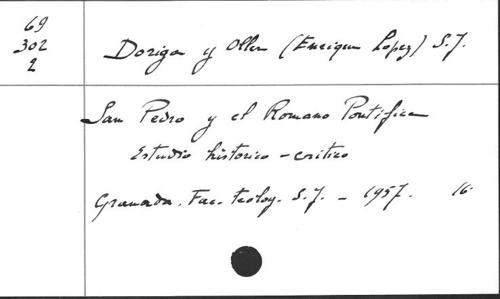 69
302
2
Doriga y Oller (Enrique Lopez) S.J.
San Pedro y el Romano Pontifice
Estudio historico - critico
Granada. Fac. teolog. S.J. - 1957. 16.